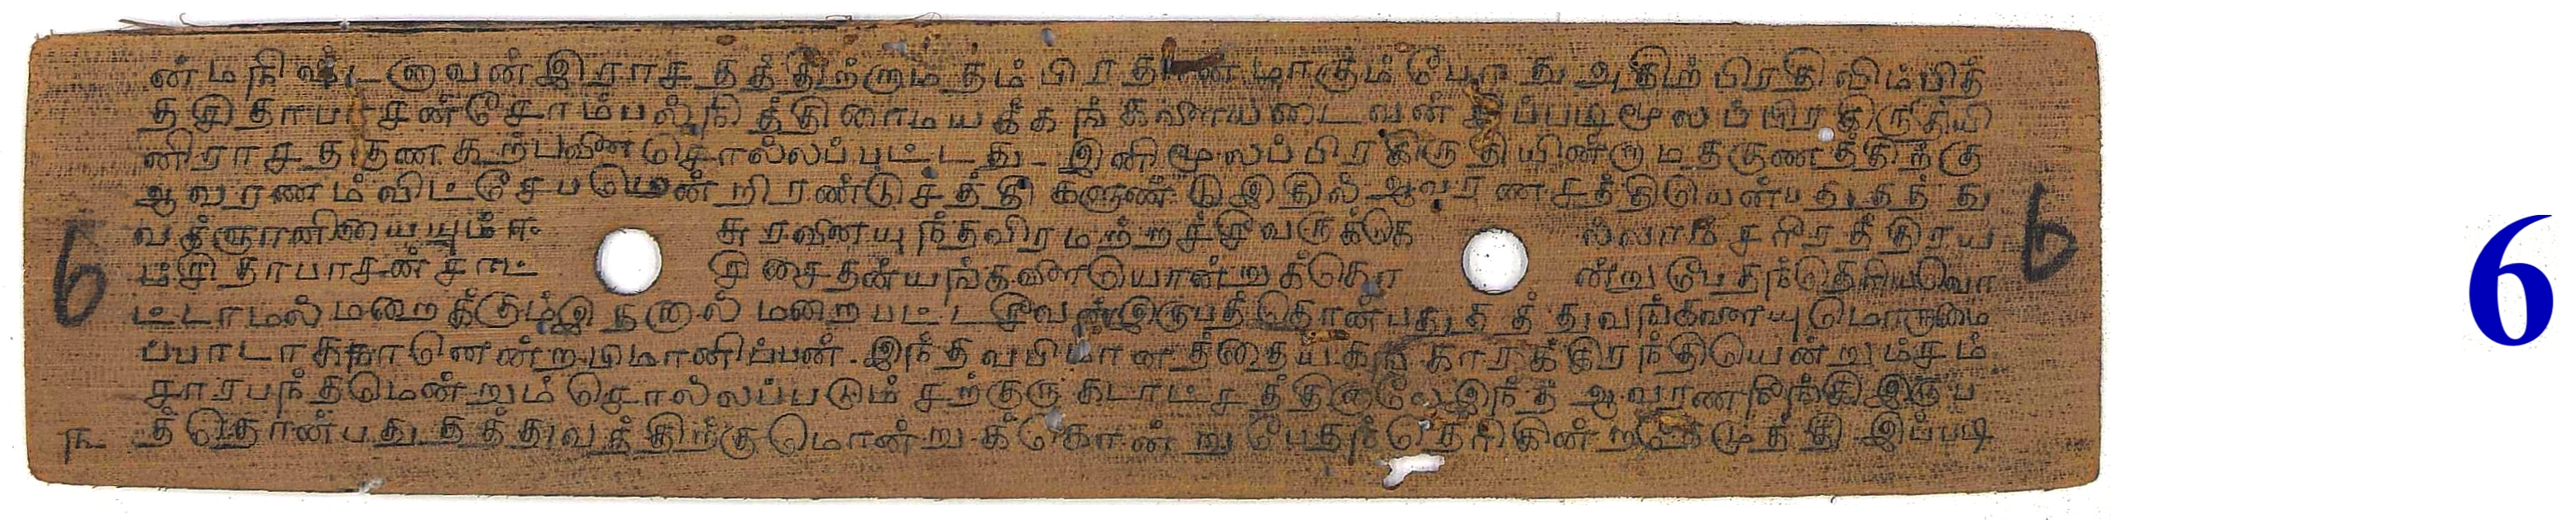 ன்மநிஷ்டனாவன்இராசதத்திற்றாமதம்பிரதானமாகும்போதுஅதிற்பிரதிவிம்பித்
தசிதாபாசன்சோம்பல்நித்திரைமயக்கங்களையடைவன்இப்படிமூலப்பிரகிருதியி
னிராசதகுண கற்பனைசொல்லப்பட்டது-இனிமூலப்பிரகிருதியின்றாமதகுணத்திற்கு
ஆவரணம்விட்சேபமென்றிரண்டுசத்திகளுண்டுஇதில்ஆவரணசத்தியென்பதுதத்து
வக்ஞானியையும்ஈசுரனையுந்தவிரமற்றச்சீவருக்கெல்லாம்சரீரத்திரய
மும்சிதாபாசன்சாட்சிசைதன்யங்களையொன்றுக்கொன்றுபேதந்தெரியவொ
ட்டாமல்மறைக்கும்இதனால்மறைபட்டசீவன்இருபத்தொன்பதுதத்துவங்களையுமொருமை
ப்பாடாகநானென்றபிமானிப்பன்-இந்தவபிமானத்தையகங்காரக்கிரந்தியென்றும்சம்
சாரபந்தமென்றும்சொல்லப்படும்சற்குருகடாட்சத்தினாலேஇந்தஆவரணநீங்கிஇருப
த்தொன்பதுதத்துவத்திற்குமொன்றுக்கொன்றுபேதந்தெரிகின்றதேமுத்திஇப்படி
௩
6
6
6